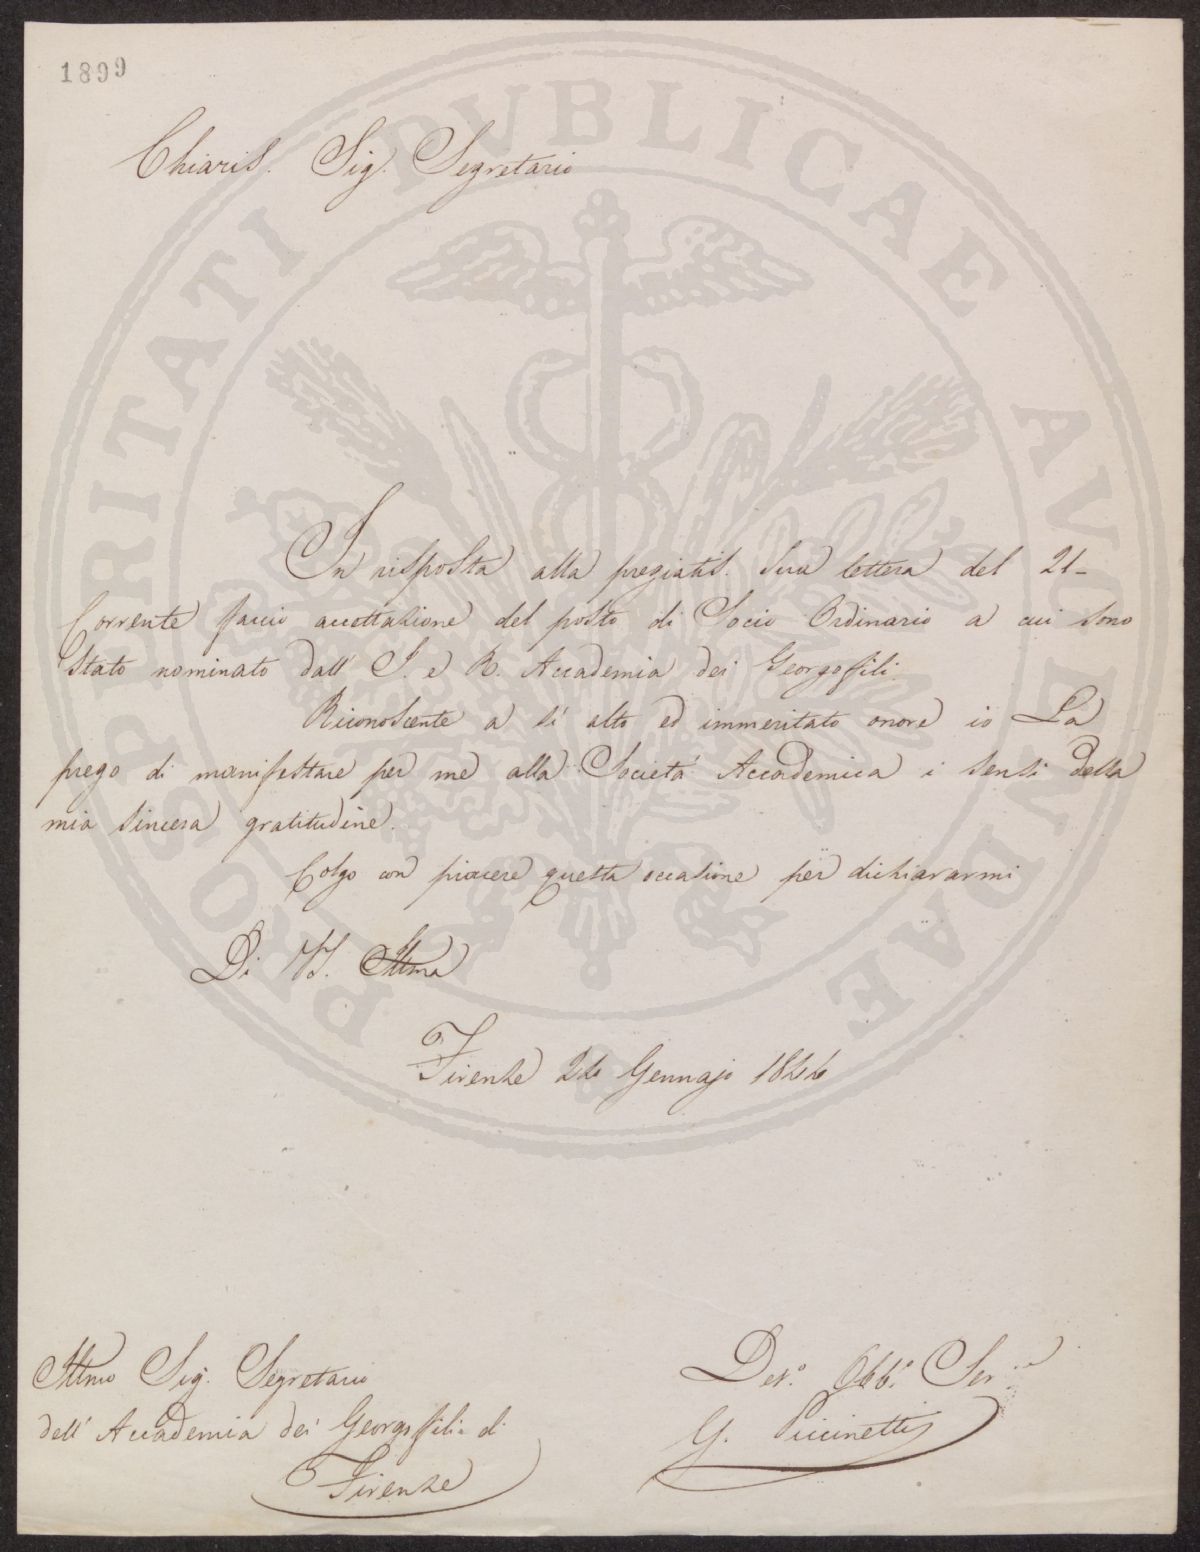 1899
PROSPERITATI PUBLICAE AUGENDAE
Chiaris. Sig. Segretario
In risposta alla pregiatis. Sua lettera del 21-
Corrente faccio accettazione del posto di Socio Ordinario a cui sono
stato nominato dall' I. e R. Accademia dei Georgofili.
Riconoscente a sì alto ed immeritato onore io La
prego di manifestare per me alla Società Accademica i sensi della
mia sincera gratitudine.
Colgo con piacere questa occasione per dichiararmi
Di V.S. Illma
Firenze 24 Gennajo 1844
Illmo Sig. Segretario
dell' Accademia dei Georgofili di
Firenze
Dev.º Obb.º Ser.e
G. Piccinetti